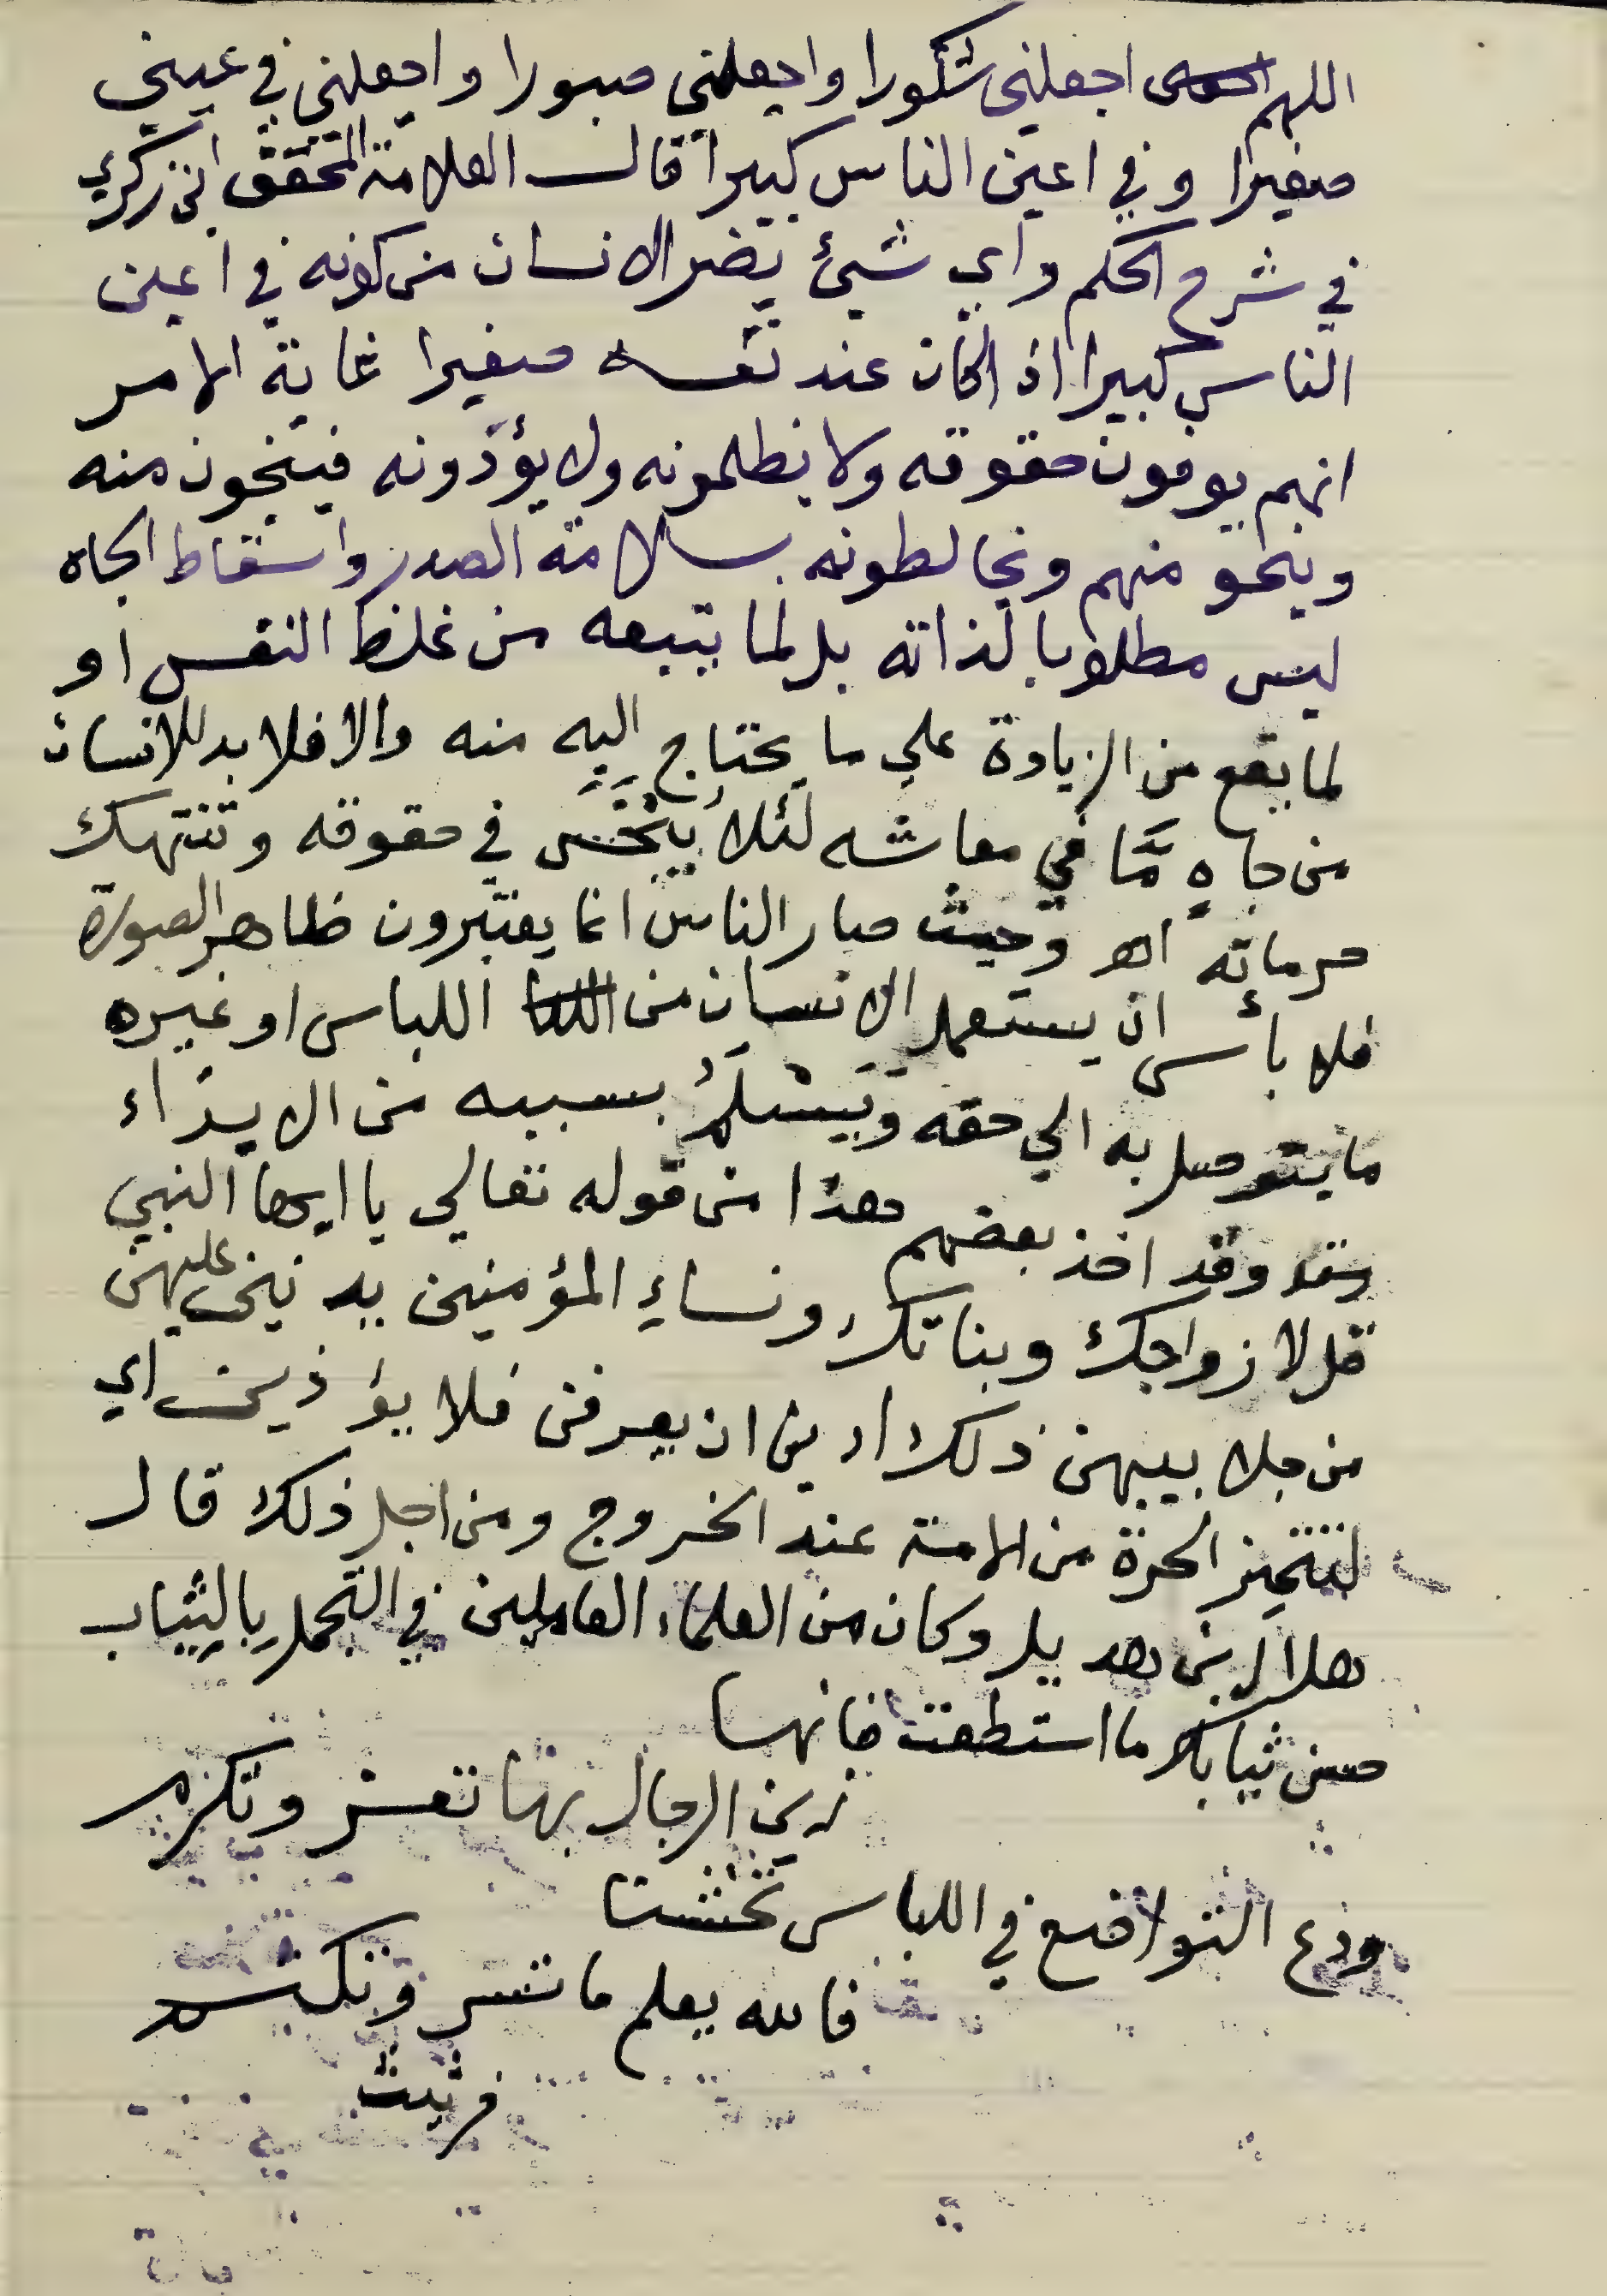 اللهم اجعلني شكورا واجعلني صبورا واجعلني في عيني
صغيرا وفي اعين الناس كبيرا قال العلامة المحقق ابن زكري
في شرح الحكم واي شيئ يضر الانسان من كونه في اعين
الناس كبيرا اذا كان عند نفسه صغيرا غاية الامر
انهم يوفون حقوقه ولا يظلمونه ولا يؤذونه فينجون منه
وينجو منهم ويخالطونه بسلامة الصدر واسقاط الجاه
ليس مطلوبا لذاته بل لما يتبعه من غلظ النفس او
لما يقع من الزيادة علي ما يحتاج اليه منه والا فلا بد للانسان
من جاهٍ مَّا في معاشه لئلا يُبْخَس في حقوقه وتنتهك
حرماته اهـ وحيث صار الناس انما يعتبرون ظاهر الصورة
فلا بأس ان يستعمل الانسان من اللباس او غيره
ما يتوصل به الي حقه ويَسْلَمُ بسببه من الايذاء
وقد اخذ بعضهم هذا من قوله تعالي يا ايها النبي
قل لازواجك وبناتك ونساءِ المؤمنين يدنين عليهن
من جلابيبهن ذلك ادني ان يعرفن فلا يؤذين اي
لتتميز الحرة من الامة عند الخروج ومن اجل ذلك قال
هلال بن هديل وكان من العلماء العاملين في التجمل بالثياب
حسن ثيابك ما استطعت فانها
زين الرجال بها تعز وتكرم
ودع التواضع في اللباس تخشنا
فالله يعلم ما تسر وتكتم